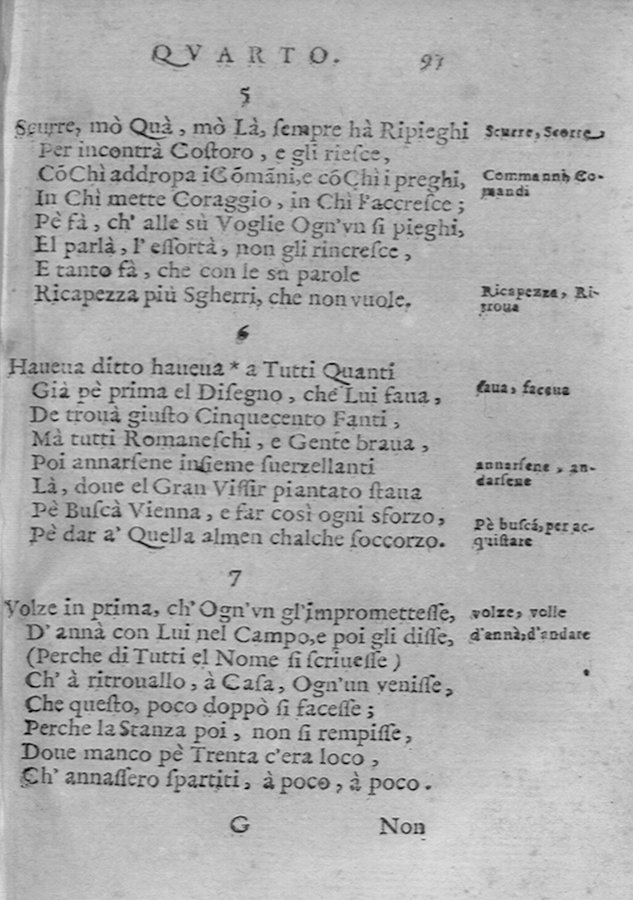 QVARTO. 97
5
Scurre, mò Quà, mò Là, ſempre hà Ripieghi
Per incontrà Coſtoro, e gli rieſce,
CõChì addropa i Cõmãni, e cõChì i preghi,
In Chì mette Coraggio, in Chì l'accreſce;
Pè fà, ch' alle sù Voglie Ogn'vn ſi pieghi,
El parlà, l' eſſortà, non gli rincreſce,
E tanto fà, che con le sù parole
Ricapezza più Sgherri, che non vuole.
Scurre, Scorre
Commanni, Comandi
Ricapezza, Ritroua
6
Haueua ditto haueua * a Tutti Quanti
Già pè prima el Diſegno, che Lui faua,
De trouà giuſto Cinquecento Fanti,
Mà tutti Romaneſchi, e Gente braua,
Poi annarſene inſieme ſuerzellanti
Là, doue el Gran Viſſir piantato ſtaua
Pè Buſcà Vienna, e far così ogni sforzo,
Pè dar a' Quella almen chalche ſoccorzo.
faua, faceua
annarſene, andarſene
Pè buſcá, per acquiſtare
7
Volze in prima, ch' Ogn'vn gl'impromettesſe,
D' annà con Lui nel Campo, e poi gli diſſe,
(Perche di Tutti el Nome ſi ſcriueſſe)
Ch' à ritrouallo, à Caſa, Ogn'un veniſſe,
Che queſto, poco doppò ſi faceſſe;
Perche la Stanza poi, non ſi rempiſſe,
Doue manco pè Trenta c'era loco,
Ch' annaſſero ſpartiti, à poco, à poco.
volze, volle
d'annà, d'andare
G Non